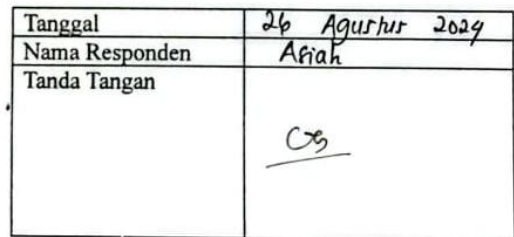 Tanggal 26 Agustus 2024
Nama Responden Asiah
Tanda Tangan